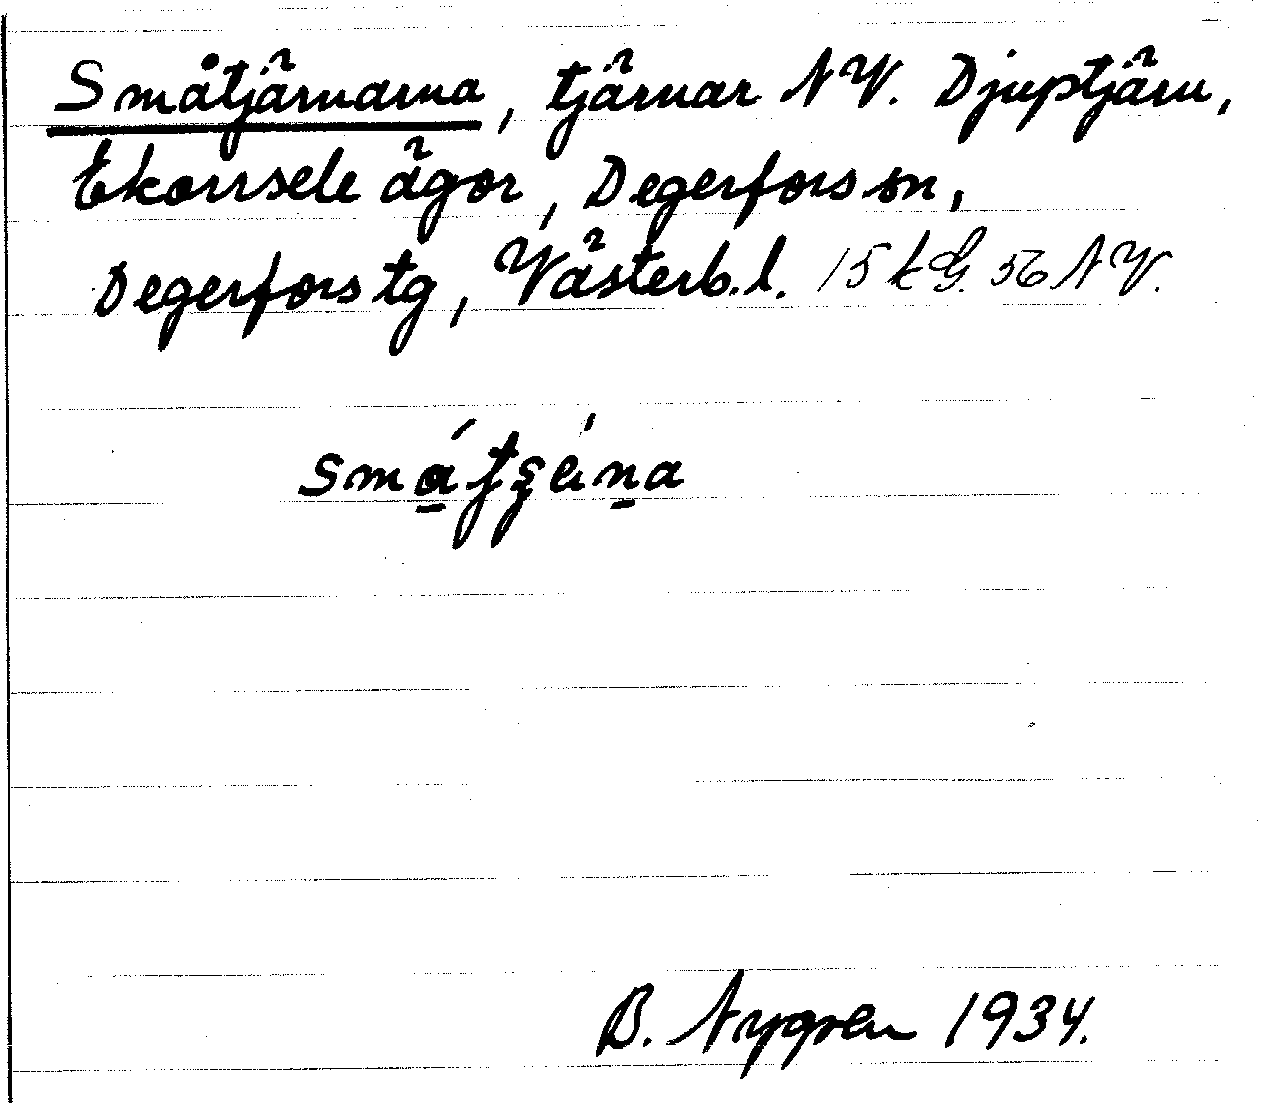 Småtjärnarna, tjärnar NV. Djuptjärn,
Ekorrsele ägor, Degerfors sn,
Degerfors tg, Västerb.l. 15 kG. 56 NV.
B. Nygren 1934.